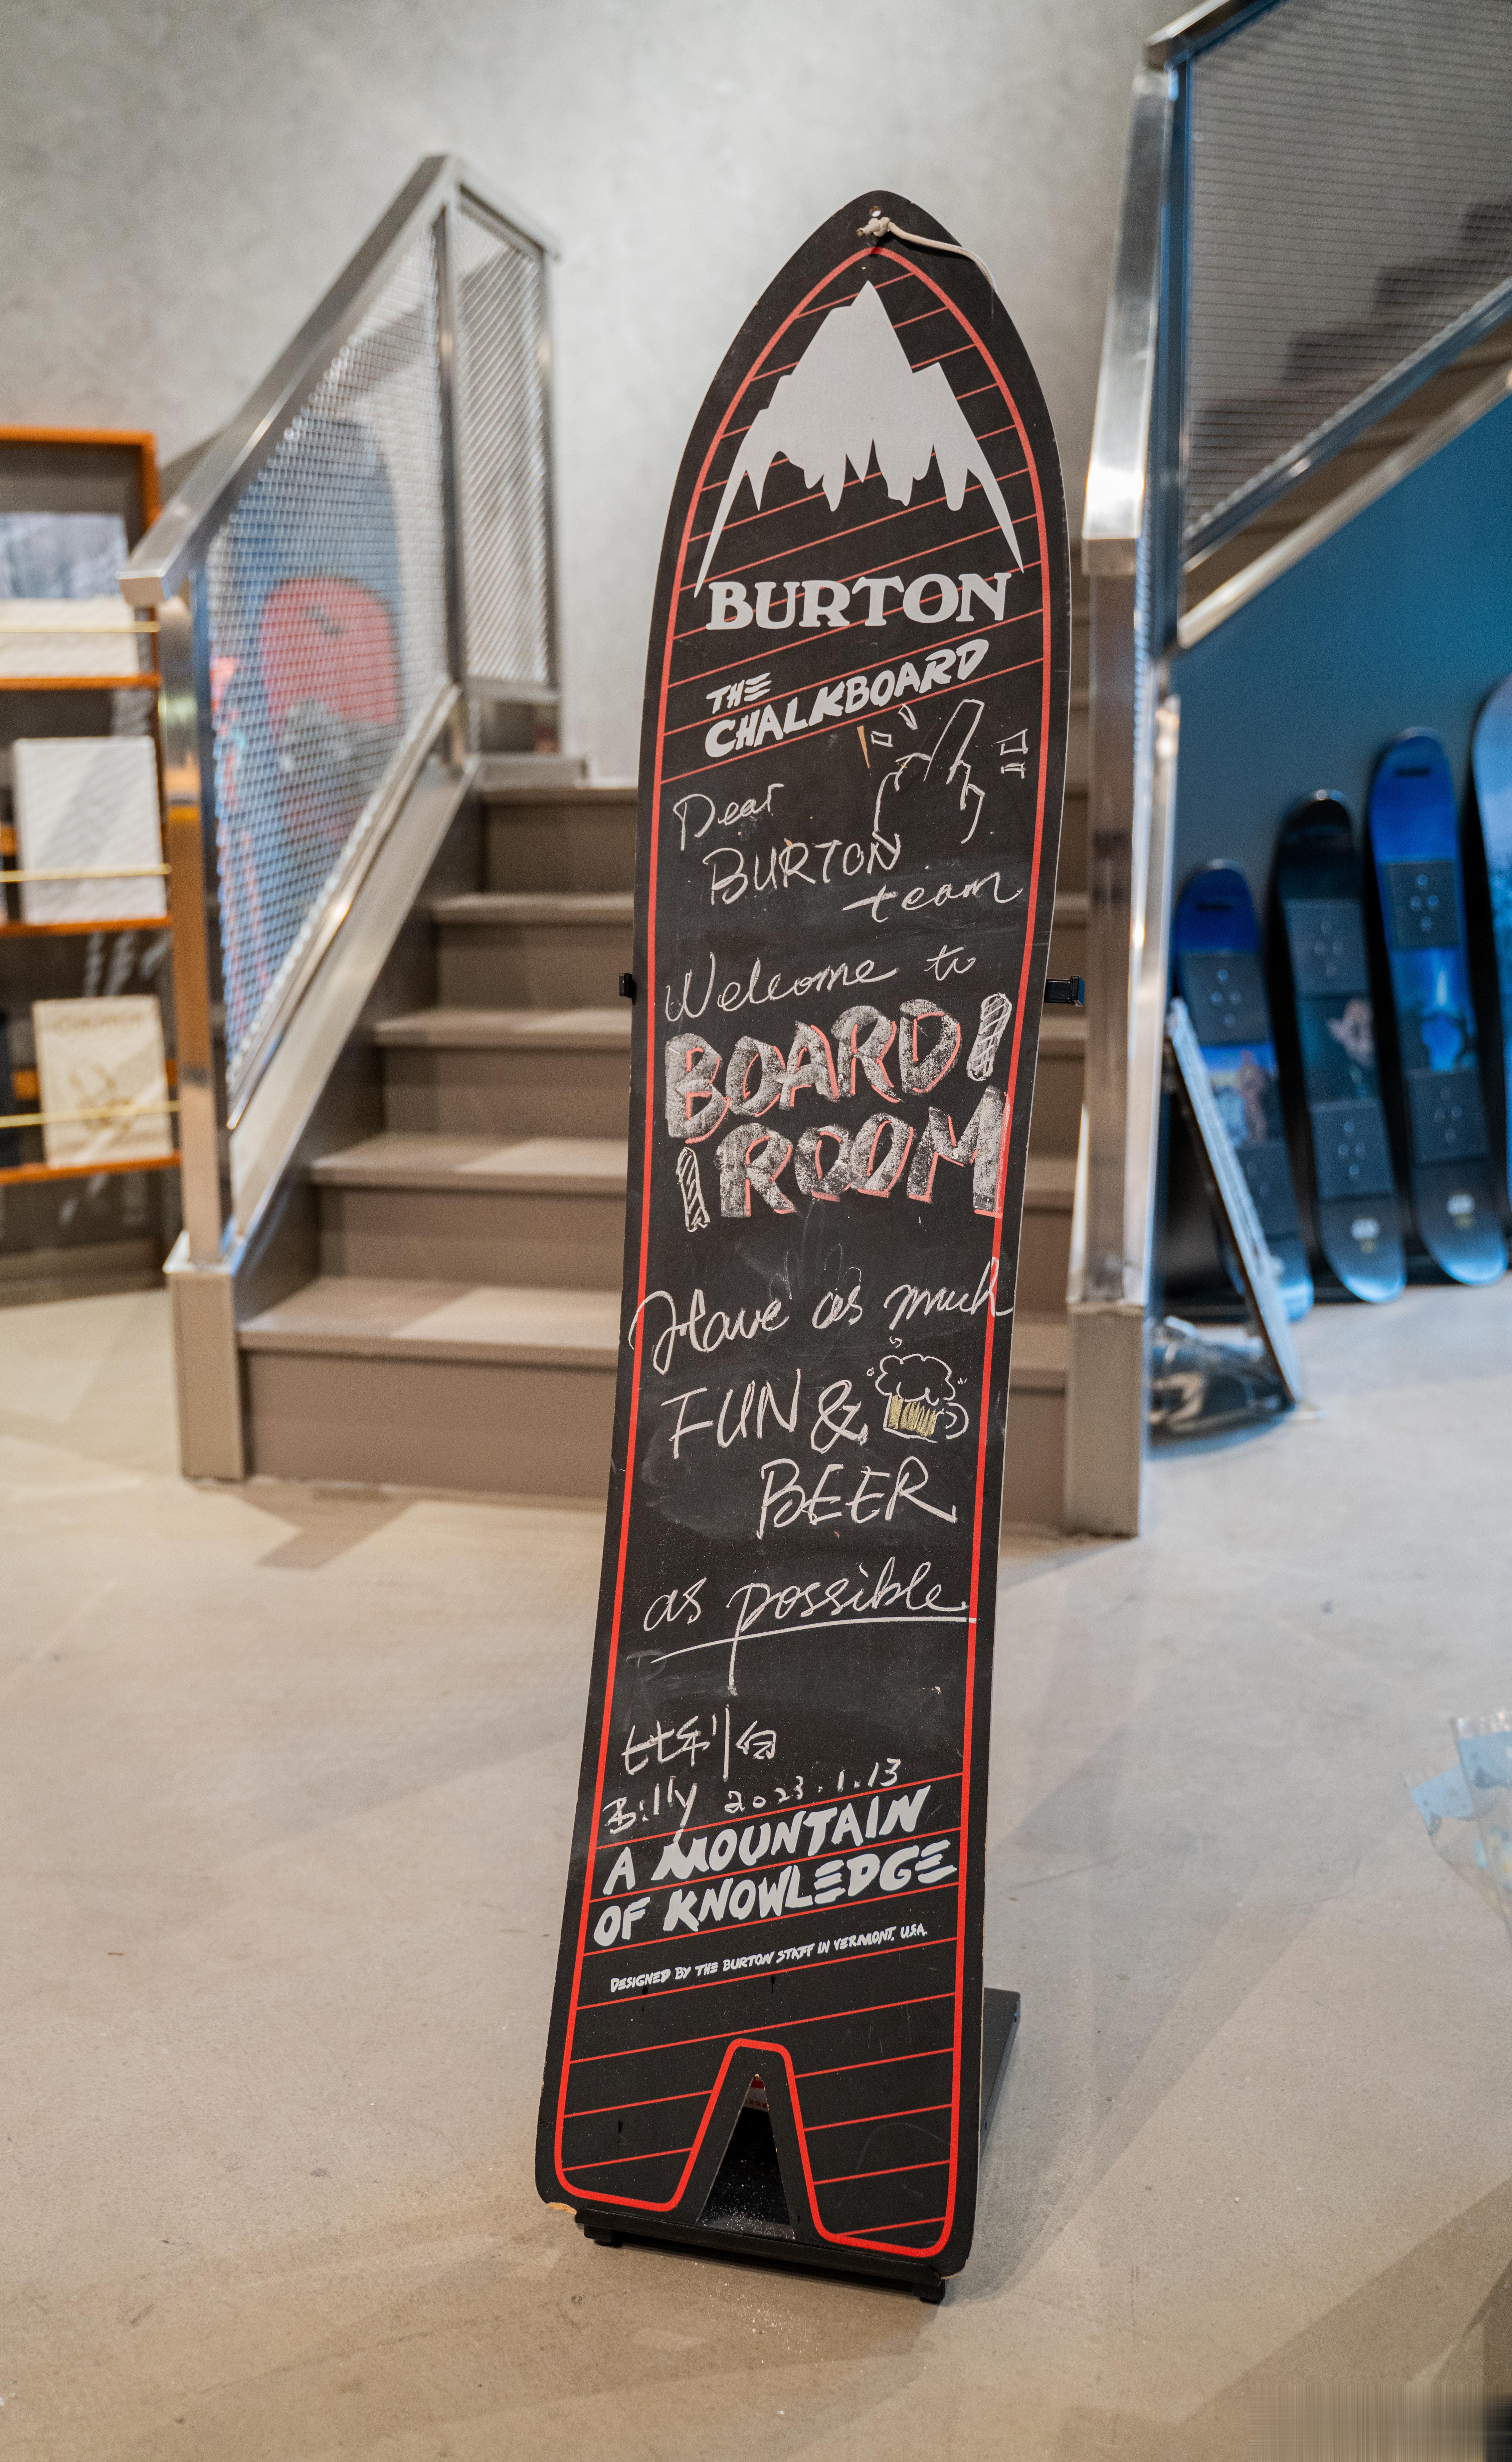 BURTON
THE
CHALKBOARD
Dear
BURTON
team
Welcome to
BOARD!
ROOM
Have as much
FUN &
BEER
as possible
比利白
Billy 2023.1.13
A MOUNTAIN
OF KNOWLEDGE
DESIGNED BY THE BURTON STAFF IN VERMONT, USA.